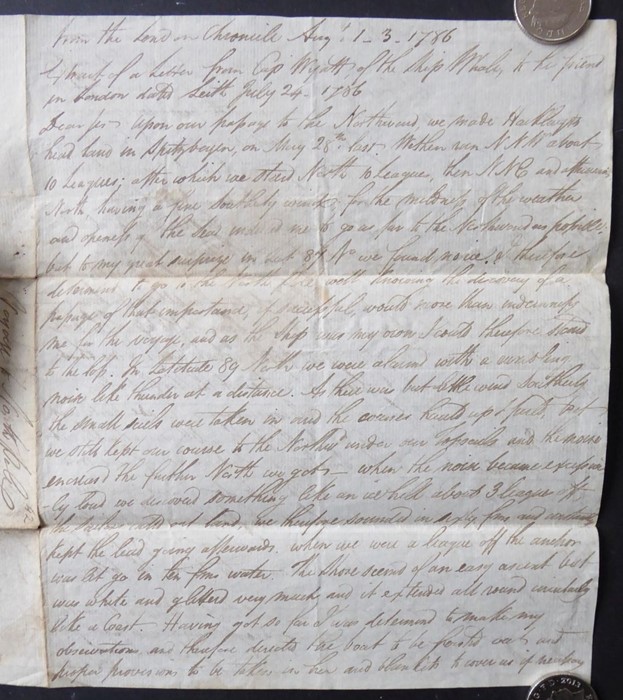 from the London Chronicle Augt 1-3-1786
Extract of a Letter from Cap Wyatt of the Ship Whale, to his friend
in London dated Leith July 24 1786
Dear Sir upon our passage to the Northward, we made Hackluyts
head land in Spitzbergen, on May 28th last. We then run NNW about
10 leagues; after which we stood North 10 league, then NNE and afterwards
North, having a fine southerly wind, for the mildness of the weather
and openness of the Seas induced me to go as far to the Northward as possible:
but to my great surprize in Lat 84 No we found no ice. & therefore
determind to go to the North Pole well knowing the discovery of a
passage of that importance, if successful, would more than indemnify
me for the voyage, and as the Ship was my own I could therefore stand
to the loss. In Latitude 89 North we were alarmd with a rumbling
noise like thunder at a distance. As there was but little wind Southerly
the small sails were taken in and the courses hauld up & furld, but
we still kept our course to the Northwd under our topsails and the noise
encreasd the further North we got - when the noise became excessive
ly loud we discoverd something like an ice hill about 3 leagues off
the calld out land, we therefore sounded in fms and
kept the lead going afterwards. when we were a league off the anchor
was let go in ten fms water. The shore seemd of an easy ascent but
was white and glitterd very much and it extended all round
like a Coast. Having got so far I was determind to make my
observations and therefore directed the boat to be hoisted out and
proper provisions to be taken in her and blankets to cover us if necessary